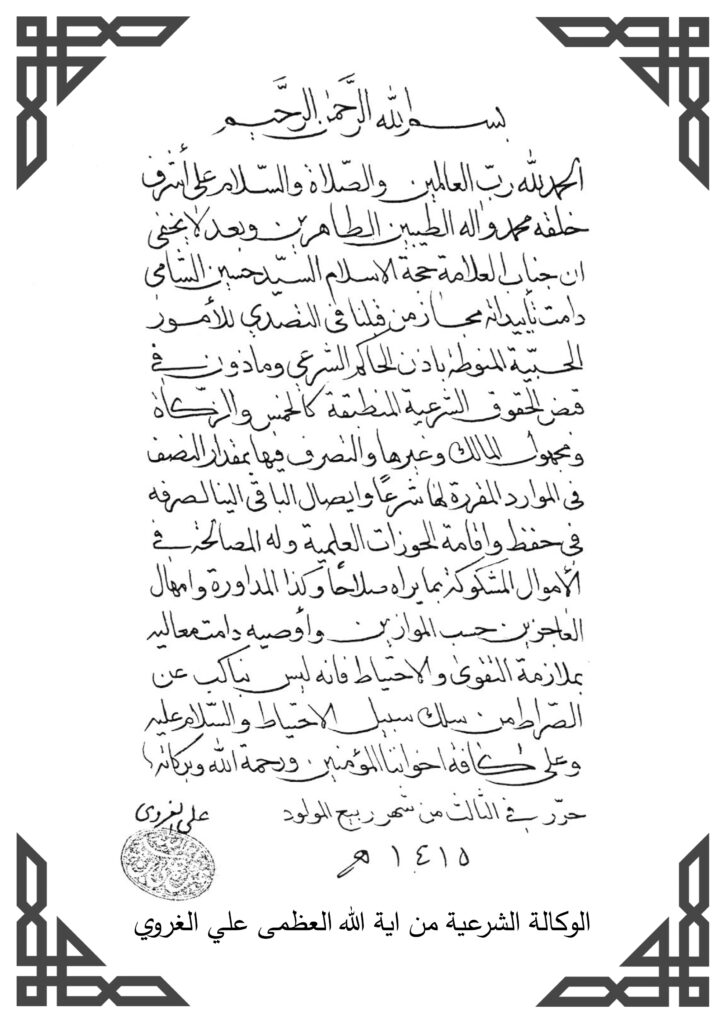 بسم الله الرَّحمن الرَّحيم
الحمد لله ربّ العالمين والصّلاة والسّلام على أشرف
خلقه محمد وآله الطيبين الطاهرين وبعد لا يخفى
ان جناب العلامة حجة الاسلام السيّد حسين الشامي
دامت تأييداته مجاز من قبلنا في التصدي للأمور
الحسبيّة المنوطة باذن الحاكم الشرعي وماذون في
قبض الحقوق الشرعية المنطبقة كالخمس والزكاة
ومجهول المالك وغيرها والتصرف فيها بمقدار النصف
في الموارد المقررة لها شرعاً وايصال الباقي الينا لصرفه
في حفظ واقامة الحوزات العلمية وله المصالحة في
الأموال المشكوكة بما يراه صلاحاً وكذا المداورة وامهال
العاجزين حسب الموازين وأوصيه دامت معاليه
بملازمة التقوى والاحتياط فانه ليس بناكب عن
الصّراط من سلك سبيل الاحتياط والسّلام عليه
وعلى كافة اخواننا المؤمنين ورحمة الله وبركاته
حرّر في الثالث من شهر ربيع المولود
علي الغروي
١٤١٥ هـ
الوكالة الشرعية من اية الله العظمى علي الغروي